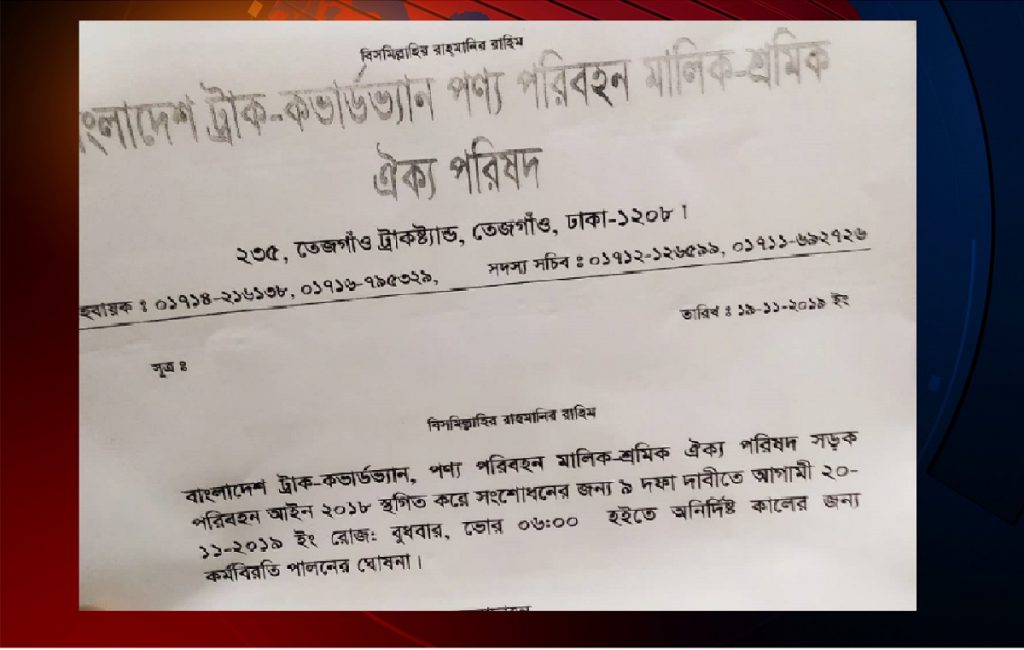 বিসমিল্লাহির রাহমানির রাহিম
বাংলাদেশ ট্রাক-কভার্ডভ্যান পণ্য পরিবহন মালিক-শ্রমিক
ঐক্য পরিষদ
২৩৫, তেজগাঁও ট্রাকষ্ট্যান্ড, তেজগাঁও, ঢাকা-১২০৮।
হবায়ক ঃ ০১৭১৪-২১৬১৩৮, ০১৭১৬-৭৯৫৩২৯, সদস্য সচিব ঃ ০১৭১২-১২৬৫৯৯, ০১৭১১-৬৯২৭২৬
তারিখ ঃ ১৯-১১-২০১৯ ইং
সূত্র ঃ
বিসমিল্লাহির রাহমানির রাহিম
বাংলাদেশ ট্রাক-কভার্ডভ্যান, পণ্য পরিবহন মালিক-শ্রমিক ঐক্য পরিষদ সড়ক
পরিবহন আইন ২০১৮ স্থগিত করে সংশোধনের জন্য ৯ দফা দাবীতে আগামী ২০-
১১-২০১৯ ইং রোজঃ বুধবার, ভোর ০৬ঃ০০ হইতে অনির্দিষ্ট কালের জন্য
কর্মবিরতি পালনের ঘোষনা।